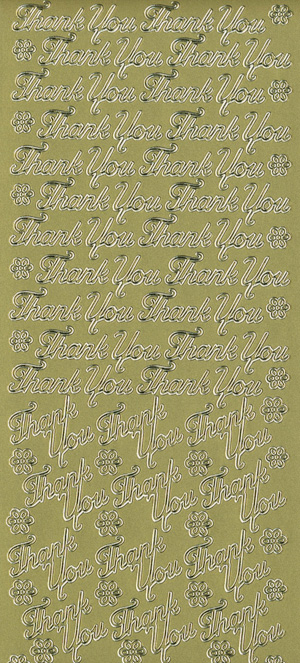 Thank You Thank You
Thank You Thank You
Thank You Thank You
Thank You Thank You
Thank You Thank You
Thank You Thank You
Thank You Thank You
Thank You Thank You
Thank You Thank You
Thank You Thank You
Thank You Thank You
Thank Thank Thank
You You You
Thank Thank Thank
You You You
Thank Thank Thank
You You You
Thank Thank Thank
You You You